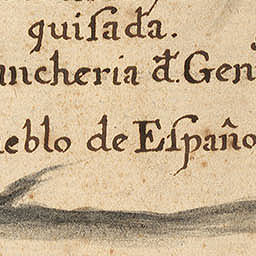 quisada.
ancheria đ. Gen
eblo de Españo